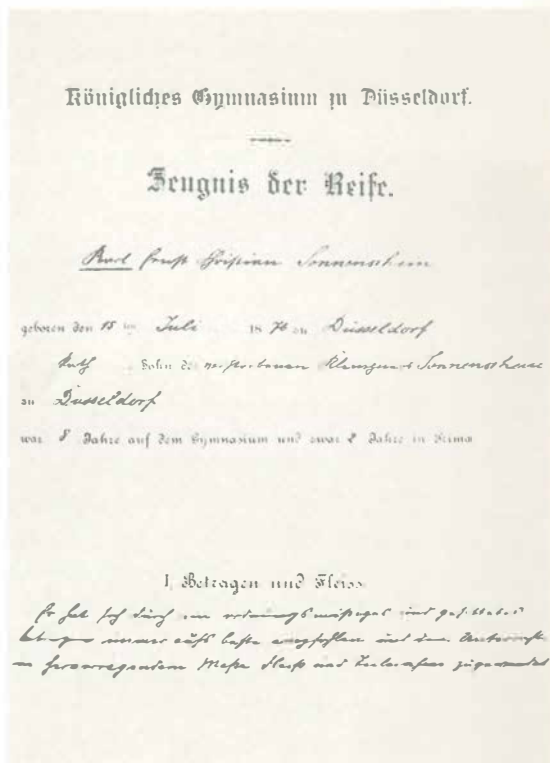 Königliches Gymnasium zu Düsseldorf.
Zeugnis der Reife.
Karl Ernst Christian Sonnenschein
geboren den 15 ten Juli 1876 zu Düsseldorf
kath Sohn des verstorbenen Klempners Sonnenschein
zu Düsseldorf
war 8 Jahre auf dem Gymnasium und zwar 2 Jahre in Prima
I. Betragen und Fleiss
Er hat sich durch ein ordnungsmäßiges und gesittetes
Betragen immer aufs beste empfohlen und dem Unterricht
in hervorragendem Maße Fleiß und Teilnahme zugewendet